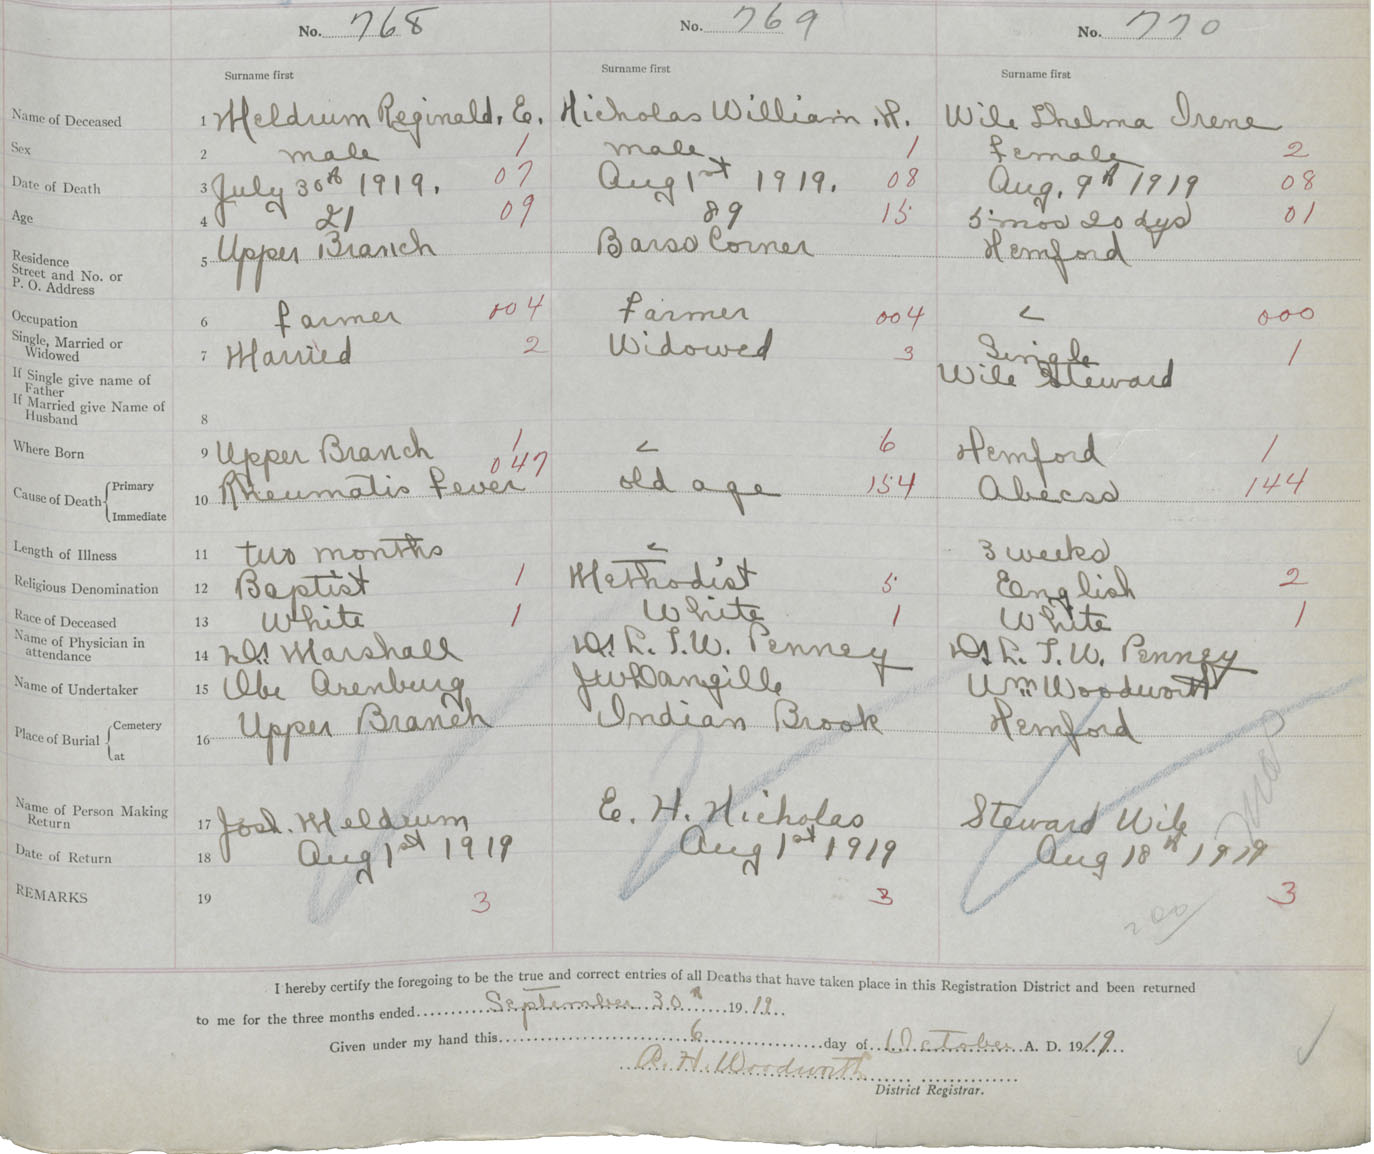 No. 768 No. 769 No. 770
Surname first Surname first Surname first
Name of Deceased 1 Meldrum Reginald. E. Nicholas William .H. Wile Thelma Irene
Sex 2 male 1 male 1 female 2
Date of Death 3 July 30th 1919. 07 Aug 1st 1919. 08 Aug. 9th 1919 08
Age 4 21 09 89 15 5 mos 20 dys 01
Residence
Street and No. or
P. O. Address 5 Upper Branch Barss Corner Hemford
Occupation 6 farmer 004 farmer 004 < 000
Single, Married or
Widowed 7 Married 2 Widowed 3 Single 1
If Single give name of
Father Wile Steward
If Married give Name of
Husband 8
Where Born 9 Upper Branch 1 < 6 Hemford 1
Cause of Death Primary
Immediate 10 Rheumatis fever 047 old age 154 Abecss 144
Length of Illness 11 two months < 3 weeks
Religious Denomination 12 Baptist 1 Methodist 5 English 2
Race of Deceased 13 White 1 White 1 White 1
Name of Physician in
attendance 14 Dr. Marshall Dr L. T. W. Penney Dr L. T. W. Penney
Name of Undertaker 15 Obe Arenburg Wm Woodworth
Place of Burial Cemetery
at 16 Upper Branch Indian Brook Hemford
Name of Person Making
Return 17 Josh. Meldrum E. H. Nicholas Steward Wile
Date of Return 18 Aug 1st 1919 Aug 1st 1919 Aug 18th 1919
REMARKS 19 3 3 3
200
I hereby certify the foregoing to be the true and correct entries of all Deaths that have taken place in this Registration District and been returned
to me for the three months ended September 30th 1919
Given under my hand this 6 day of October A. D. 1919
A. H. Woodworth
District Registrar.